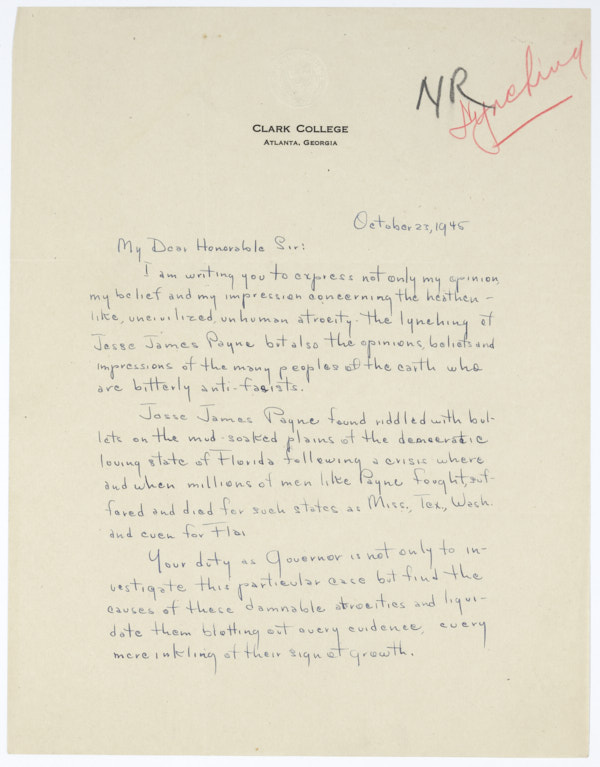 NR
Lynching
CLARK COLLEGE
ATLANTA, GEORGIA
October 23, 1945
My Dear Honorable Sir:
I am writing you to express not only my opinion,
my belief and my impression concerning the heathen-
like, uncivilized, unhuman atrocity - the lynching of
Jesse James Payne but also the opinions, beliefs and
impressions of the many peoples of the earth who
are bitterly anti-facists.
Jesse James Payne found riddled with bul-
lets on the mud-soaked plains of the democratic
loving state of Florida following a crisis where
and when millions of men like Payne fought, suf-
fered and died for such states as Miss., Tex., Wash.
and even for Fla.
Your duty as Governor is not only to in-
vestigate this particular case but find the
causes of these damnable atrocities and liqui-
date them blotting out every evidence, every
mere inkling of their sign of growth.